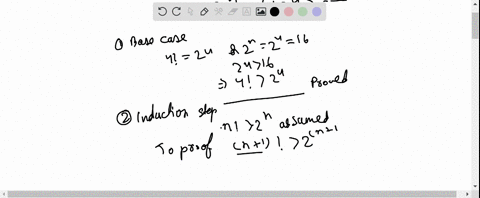 ① Base case
4! = 24 & 2^n = 2^4 = 16
24 > 16
⇒ 4! > 2^4 Proved
② Induction step
n! > 2^n assumed
To proof (n+1)! > 2^(n+1